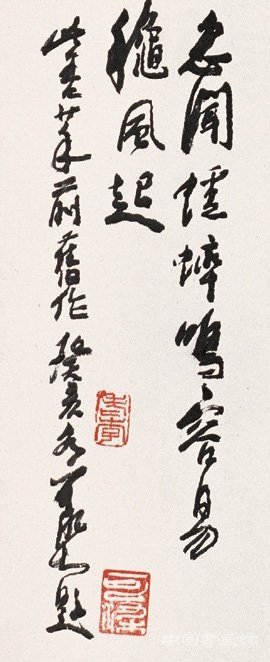 忽聞蟋蟀鳴容易
穐風起
此吾廿年前舊作 癸亥冬可染題
可染